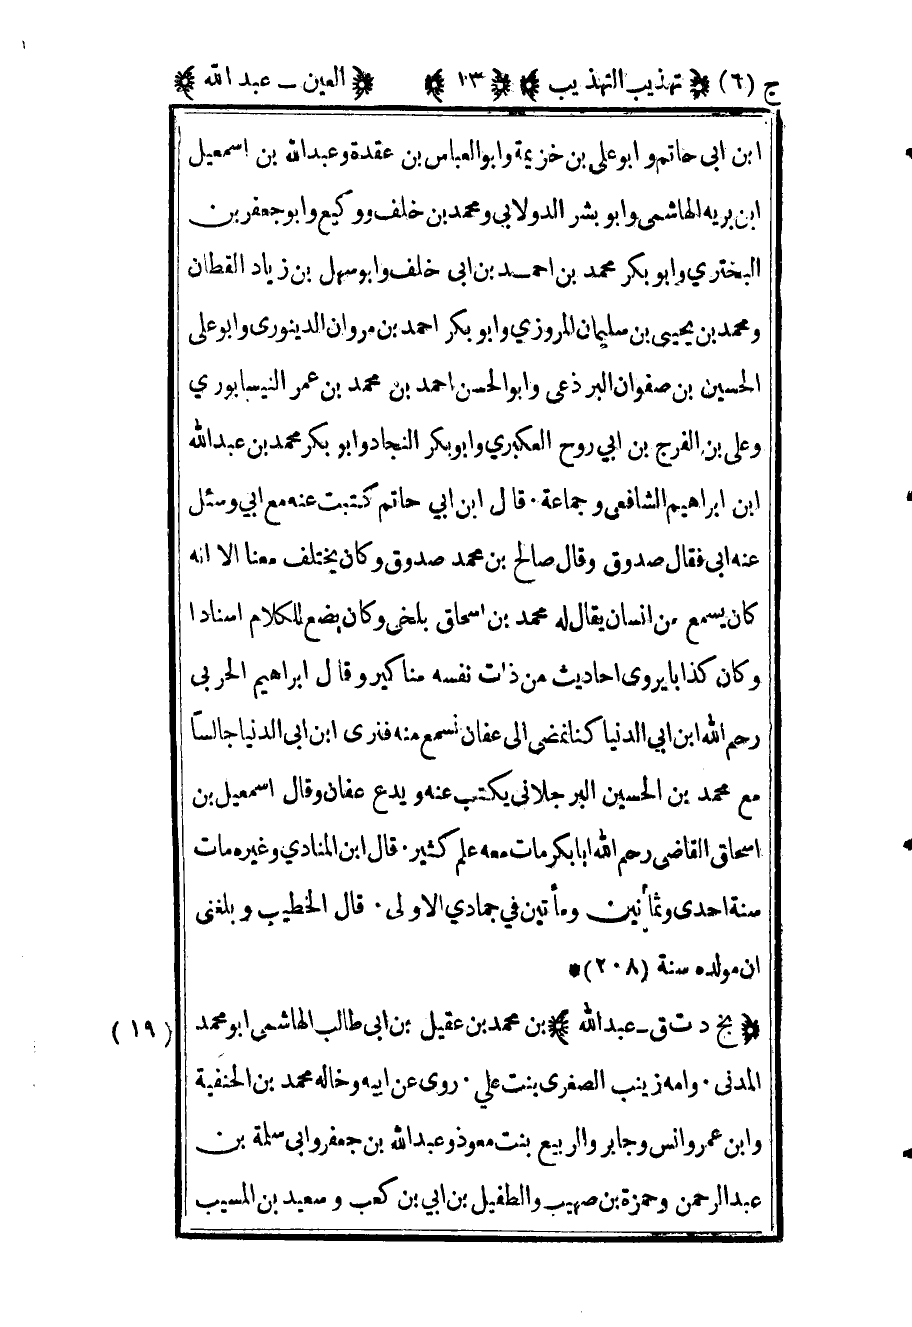 ج (٦) ﴿ تهذيب التهذيب ﴾ ﴿ ١٣ ﴾ ﴿ العين ـ عبد الله ﴾
ابن ابى حاتم و ابو على بن خزيمة وابو العباس بن عقدة و عبد الله بن اسمعيل
ابن بريه الهاشمى وابو بشر الدولابي و محمد بن خلف ووكيع وابو جعفر بن
البختري وابو بكر محمد بن احمد بن ابى خلف وابو سهل بن زياد القطان
و محمد بن يحيى بن سليمان المروزي وابو بكر احمد بن مروان الدينورى وابو على
الحسين بن صفوان البرذعى وابو الحسن احمد بن محمد بن عمر النيسابوري
وعلى بن الفرج بن ابي روح العكبري وابوبكر النجاد وابو بكر محمد بن عبد الله
ابن ابراهيم الشافعى و جماعة٠ قال ابن ابي حاتم كتبت عنه مع ابي وسئل
عنه ابى فقال صدوق وقال صالح بن محمد صدوق وكان يختلف معنا الا انه
كان يسمع من انسان يقال له محمد بن اسحاق بلخى وكان يضع للكلام اسنادا
وكان كذابا يروى احاديث من ذات نفسه مناكير وقال ابراهيم الحربى
رحم الله ابن ابي الدنيا كنا نمضى الى عفان نسمع منه فنرى ابن ابى الدنيا جالسا
مع محمد بن الحسين البرجلانى يكتب عنه و يدع عفان وقال اسمعيل بن
اسحاق القاضى رحم الله ابا بكر مات معه علم كثير٠ قال ابن المنادي وغيره مات
سنة احدى وثمانين ومأتين في جمادي الاولى٠ قال الخطيب و بلغنى
ان مولده سنة (٢٠٨)*
﴿ بخ د ت ق ـ عبد الله ﴾ بن محمد بن عقيل بن ابى طالب الهاشمى ابو محمد (١٩)
المدنى٠ وامه زينب الصغرى بنت علي٠ روى عن ابيه وخاله محمد بن الحنفية
وابن عمر وانس وجابر والربيع بنت معوذ وعبد الله بن جعفر وابى سلمة بن
عبد الرحمن وحمزة بن صهيب والطفيل بن ابي بن كعب و سعيد بن المسيب